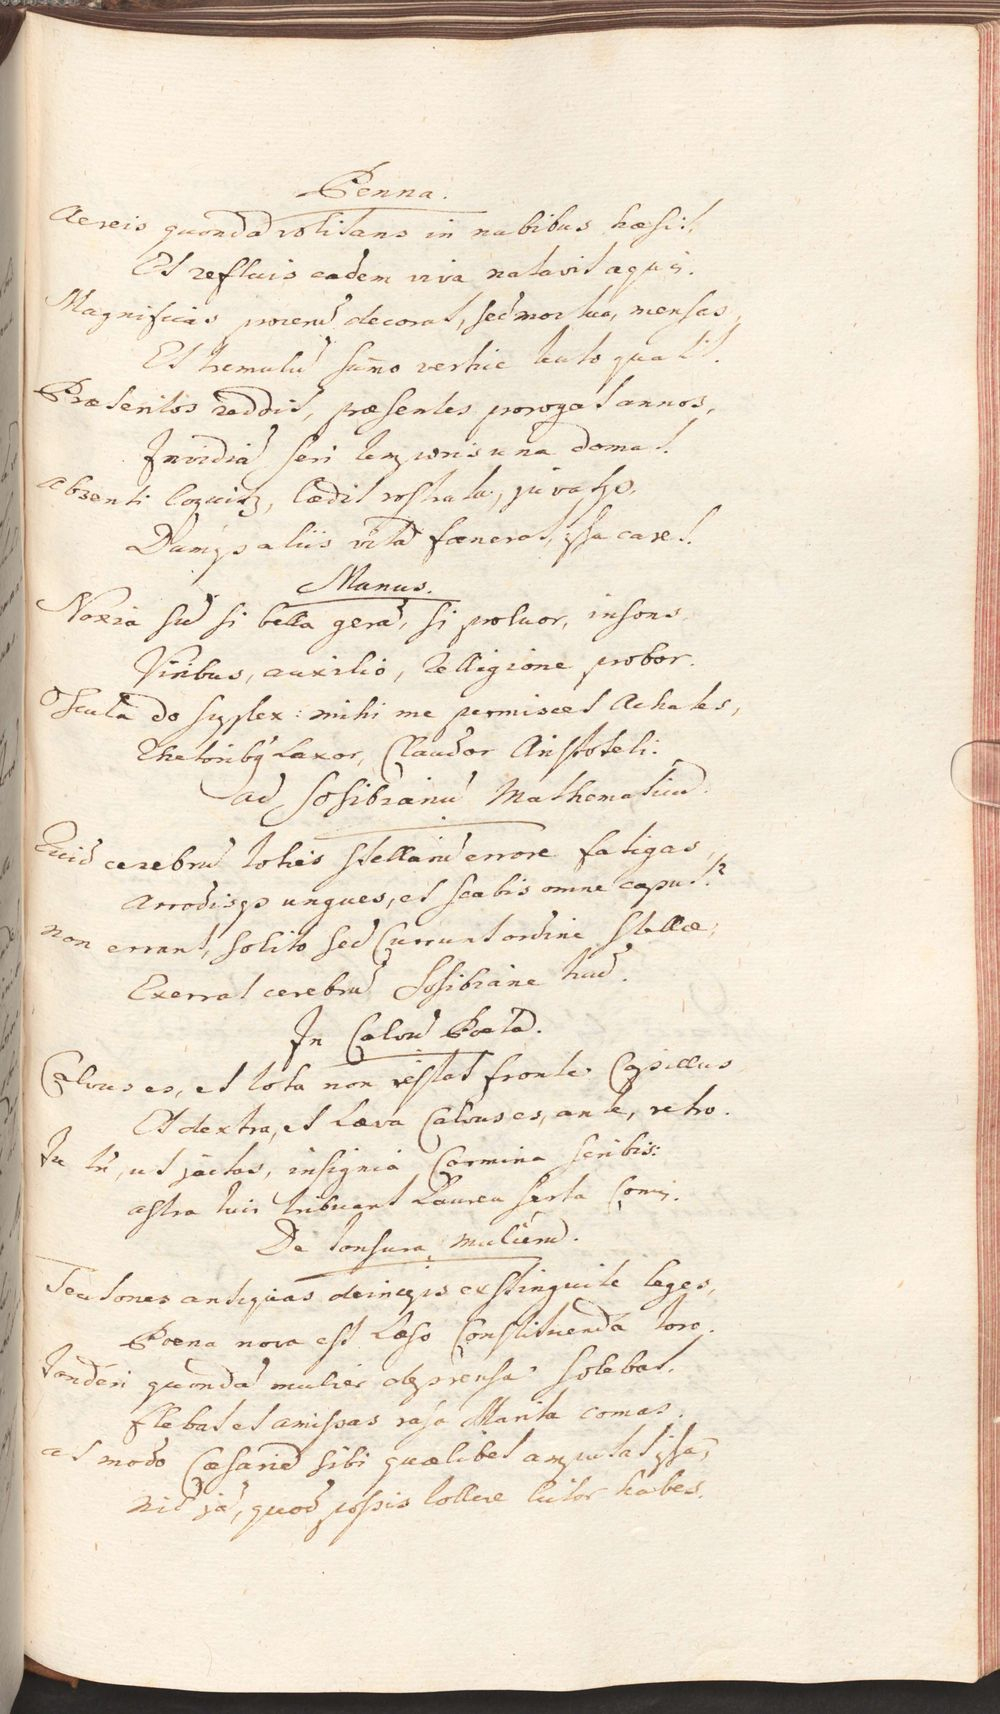 Penna.
Aereis quondā volitans in nubibus hæsit
Et refluis eadem viva natavit aquis.
Magnificas procerū decorat, sed mortua, mensas,
Et tremulū sum̄o vertice tecto quatit.
Præteritos reddit, præsentes prorogat annos,
Invidiā seri temporis una domat.
absenti loquitq, lædit rostrata, juvatqs.
Dumqs aliis vitā fænerat, ipsa caret.
Manus.
Noxia sū si bella gerā, si poluor, insons.
Viribus, auxilio, relligione probor.
Oscula do suplex: mihi me permiscet Achates,
Rhetoribq laxor, Claudor Aristoteli.
ad Sosibianū Mathematicū.
Quid cerebrū toties stellarū errore fatigas,
Arrodisqs ungues, et scabis omne caput?
non errant, solito sed Currunt ordine stellæ;
Exerrat cerebrū Sosibiane tuū.
In Calvū Poetā.
Calvus es, et tota non restat fronte Capillus
Et dextra, et Læva Calvus es, ante, retro.
Tu tn̄, ut jactas, insignia Carmina scribis:
astra tuis tribuant Laurea serta Comis.
De tonsura mulierū.
Teutones antiquas deincqs exstinguite leges,
Poena nova est Læso Constituenda toro.
Tonderi quondā mulier deprensa solebat.
flebat et amissas rasa Marita comas.
at modo Cæsariē sibi quælibet amputat ipsa,
Nil jā, quod possis tollere tutor habes.